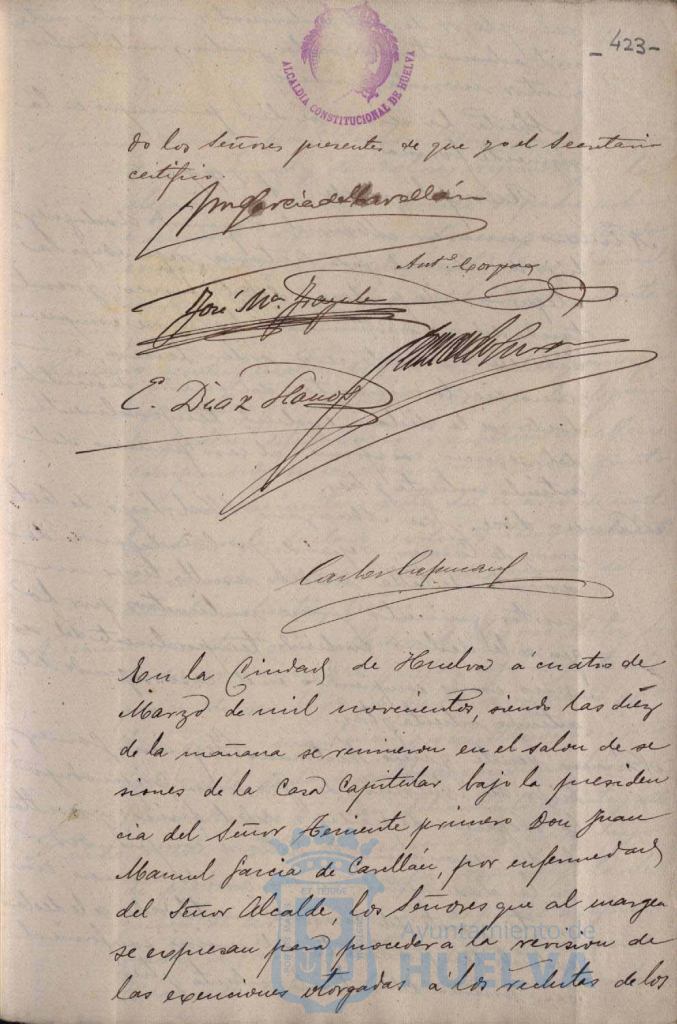 ALCALDIA CONSTITUCIONAL DE HUELVA
-423-
do los Señores presentes de que yo el Secretario
certifico.
José Mª
E. Diaz Llanos
Carlos
En la Ciudad de Huelva á cuatro de
Marzo de mil novecientos, siendo las diéz
de la mañana se reunieron en el salon de se
siones de la Casa Capitular bajo la presiden
cia del Señor Teniente primero Don Juan
Manuel Garcia de Carellán, por enfermedad
del Señor Alcalde, los Señores que al margen
se expresan para proceder á la revision de
las exenciones otorgadas á los reclutas de los
Ayuntamiento de
HUELVA